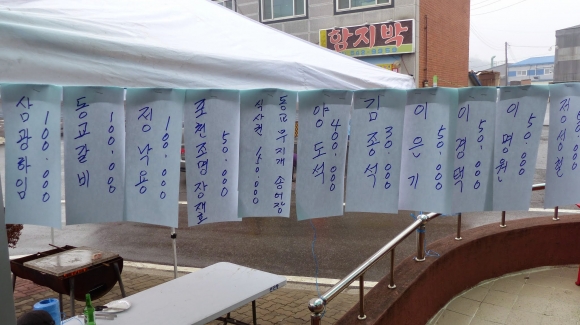 함지박
삼광하임
100.000
동교갈비
100.000
정낙용
100.000
포천조명 장재호
50.000
동교무지개 송어장
식사권 50.000
양도석
40.000
김종석
30.000
이은기
50.000
이경택
50.000
이명원
50.000
정성철